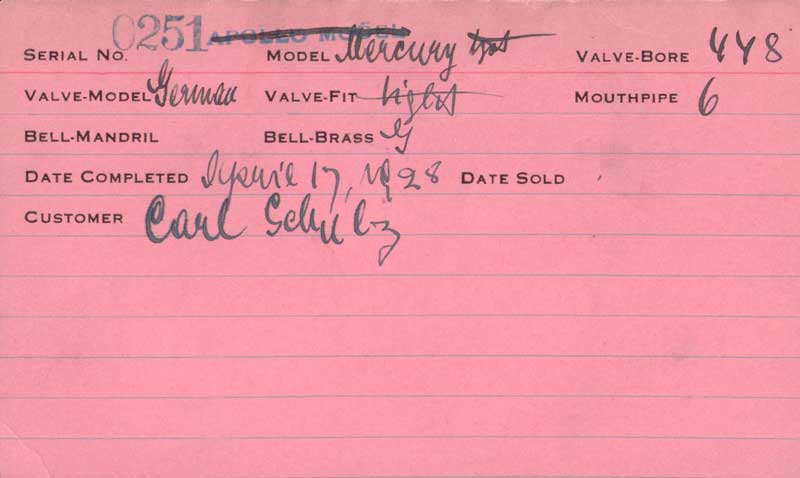 0251 APOLLO MODEL
SERIAL NO. MODEL Mercury VALVE-BORE 448
VALVE-MODEL German VALVE-FIT tight MOUTHPIPE 6
BELL-MANDRIL BELL-BRASS G
DATE COMPLETED April 17, 1928 DATE SOLD
CUSTOMER Carl Schulz